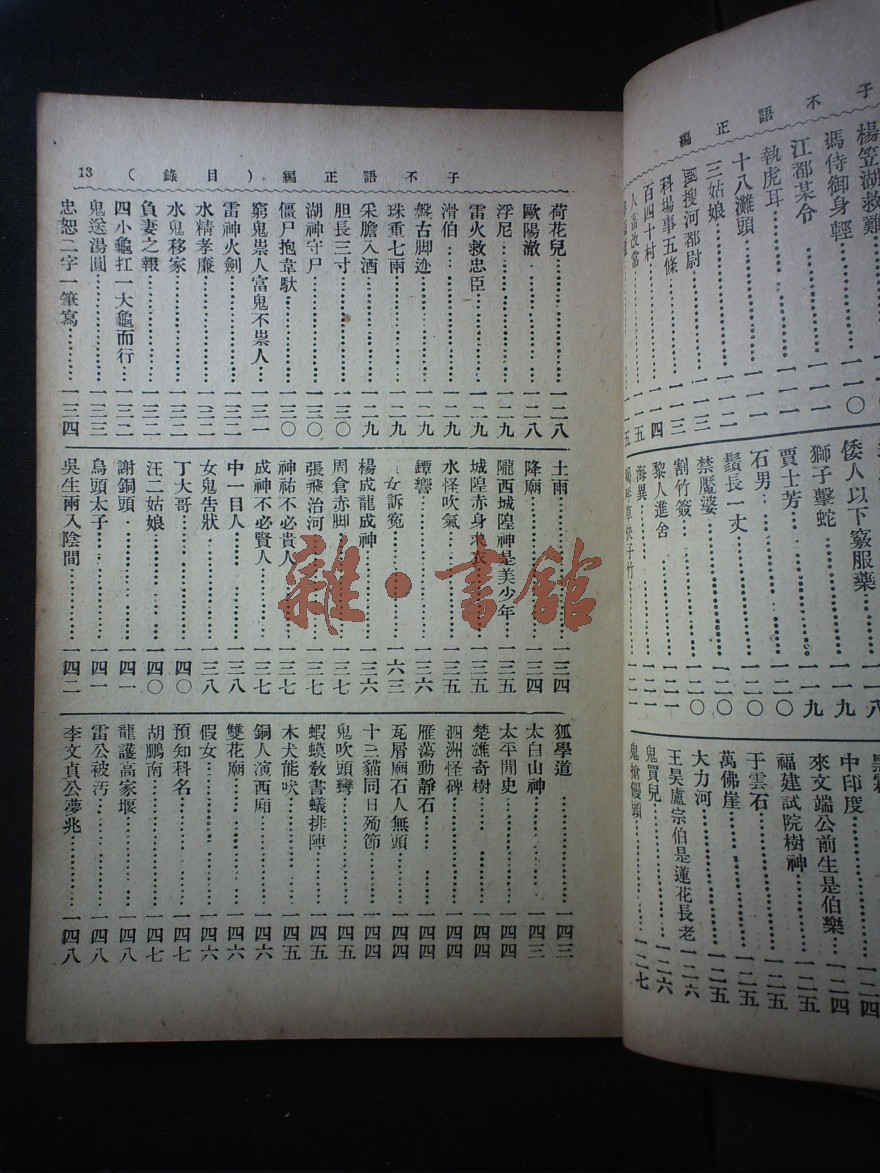 子不語正編
楊笠湖救難
馮侍御身輕……一一〇
江都某令……一一一
執虎耳……一一一
十八灘頭……一一二
三姑娘……一一二
搜河都尉……一一三
科場事五條……一一三
百四十村……一一四
人畜改常……一一五
倭人以下竅服藥……一一八
獅子擊蛇……一一九
賈士芳……一一九
石男……一二〇
鬚長一丈……一二〇
禁魘婆……一二〇
割竹簽……一二一
黎人進舍……一二一
海異……一二一
中印度……一二四
來文端公前生是伯樂……一二四
福建試院樹神……一二五
于雲石……一二五
萬佛崖……一二五
大力河……一二五
王昊廬宗伯是蓮花長老 一二六
鬼買兒……一二六
鬼搶饅頭……一二七
子不語正編(目錄) 13
荷花兒……一二八
歐陽澈……一二八
浮尼……一二九
雷火救忠臣……一二九
滑伯……一二九
盤古脚迹……一二九
珠重七兩……一二九
采膽入酒……一二九
胆長三寸……一三〇
湖神守尸……一三〇
僵尸抱韋馱……一三〇
窮鬼祟人富鬼不祟人……一三一
雷神火劍……一三二
水精孝廉……一三二
水鬼移家……一三二
負妻之報……一三二
四小龜扛一大龜而行……一三二
鬼送湯圓……一三三
忠恕二字一筆寫……一三四
土雨……一三四
降廟……一三四
隴西城隍神是美少年……一三五
城隍赤身求衣……一三五
水怪吹氣……一三五
鐔響……一三六
女訴冤……一六三
楊成龍成神……一三六
張飛治河……一三七
周倉赤脚……一三七
神祐不必貴人……一三七
成神不必賢人……一三七
中一目人……一三八
女鬼告狀……一三八
丁大哥……一四〇
汪二姑娘……一四〇
謝銅頭……一四一
烏頭太子……一四一
吳生兩入陰間……一四二
狐學道……一四三
太白山神……一四三
太平閒史……一四四
楚雄奇樹……一四四
泗洲怪碑……一四四
雁蕩動靜石……一四四
瓦屑廟石人無頭……一四四
十三貓同日殉節……一四四
鬼吹頭彎……一四五
蝦蟆敎書蟻排陣……一四五
木犬能吠……一四五
銅人演西廂……一四六
雙花廟……一四六
假女……一四六
預知科名……一四七
胡鵬南……一四七
龍護高家堰……一四八
雷公被汚……一四八
李文貞公夢兆……一四八
雜·書館